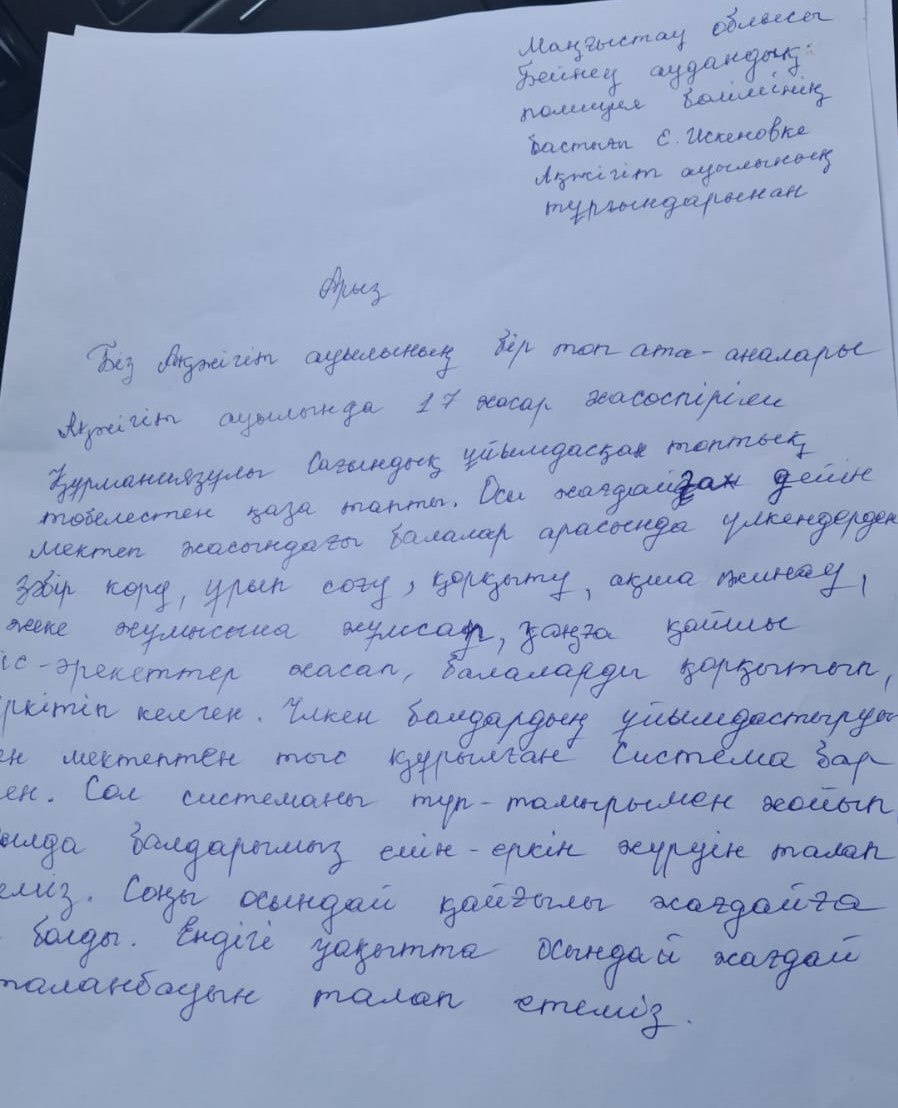 Маңғыстау облысы
Бейнеу аудандық
полиция бөлімінің
бастығы Е. Искеновке
Ақжігіт ауылының
тұрғындарынан
Арыз
Біз Ақжігіт ауылының бір топ ата-аналары
Ақжігіт ауылында 17 жасар жасөспірім
Құрманиязұлы Сағындық ұйымдасқан топтық
төбелестен қаза тапты. Осы жағдайған дейін
мектеп жасындағы балалар арасында үлкендерден
зәбір көру, ұрып соғу, қорқыту, ақша жинау,
жеке жұмысына жұмсап, заңға қайшы
іс-әрекеттер жасап, балаларды қорқытып,
ркітіп келген. Үлкен балдардың ұйымдастыруы
ен мектептен тыс құрылған система бар
ен. Сол системаны түп-тамырымен жойып,
ылда балдарымыз еміп-еркін жүруін талап
еміз. Соңы осындай қайғылы жағдайға
болды. Ендігі уақытта осындай жағдай
таланбауын талап етеміз.